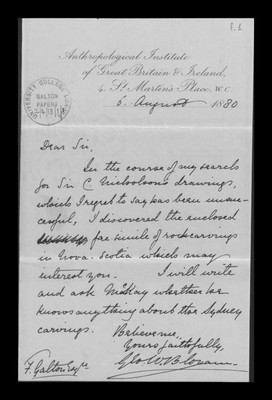 P. 1
Anthropological Institute
of Great Britain & Ireland,
4, St. Martin's Place, W.C.
UNIVERSITY COLLEGE
GALTON
PAPERS
6 August 1880
Dear Sir,
In the course of my search
for Sir C drawings,
which I regret to say has been unsuc-
cessful, I discovered the enclosed
fac simile of rock carvings
in Nova-Scotia which may
interest you. I will write
and ask McKay whether he
knows anything about the Sydney
carvings. Believe me,
Yours faithfully,
F. Galton Esqre